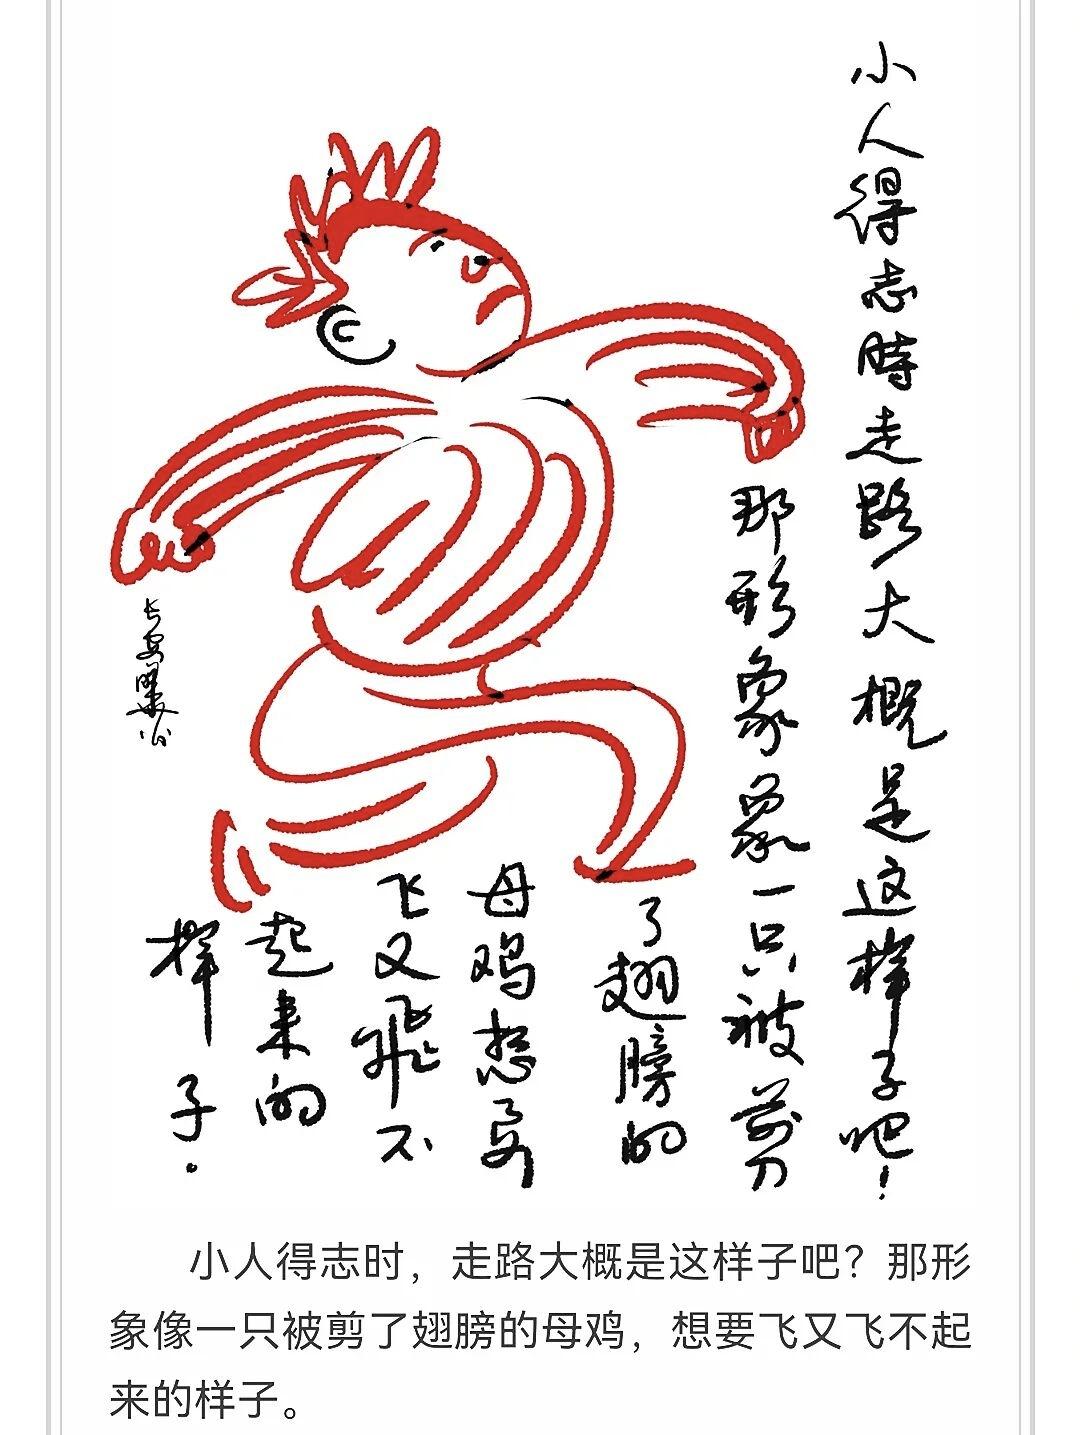 小人得志時走路大概是这样子吧！
那形象象一只被剪
了翅膀的
母鸡想要
飞又飛不
起来的
样子.
小人得志时，走路大概是这样子吧？那形
象像一只被剪了翅膀的母鸡，想要飞又飞不起
来的样子。